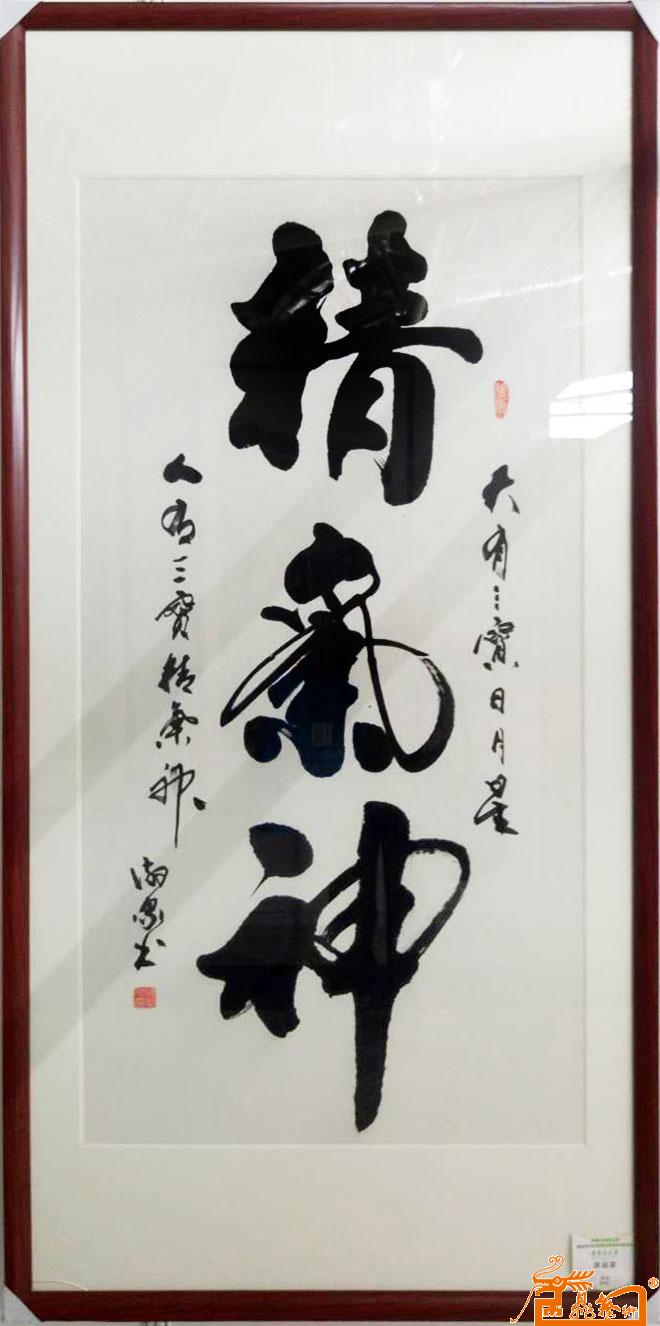 天有三寶日月星
精氣神
人有三寶精氣神
书